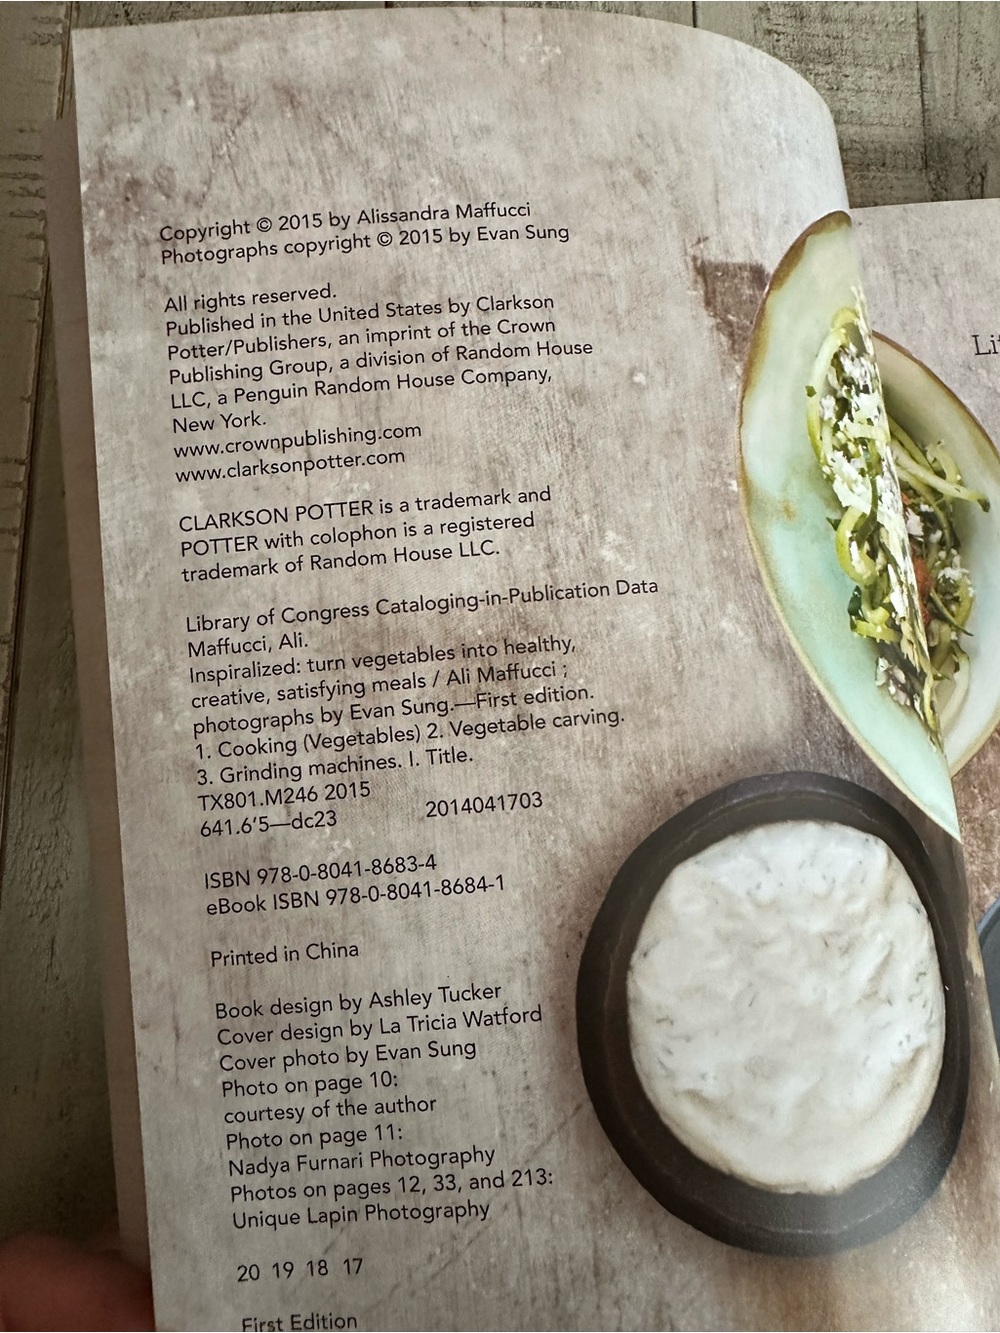 Copyright © 2015 by Alissandra Maffucci
Photographs copyright © 2015 by Evan Sung
All rights reserved.
Published in the United States by Clarkson
Potter/Publishers, an imprint of the Crown
Publishing Group, a division of Random House
LLC, a Penguin Random House Company,
New York.
www.crownpublishing.com
www.clarksonpotter.com
CLARKSON POTTER is a trademark and
POTTER with colophon is a registered
trademark of Random House LLC.
Library of Congress Cataloging-in-Publication Data
Maffucci, Ali.
Inspiralized: turn vegetables into healthy,
creative, satisfying meals / Ali Maffucci ;
photographs by Evan Sung.—First edition.
1. Cooking (Vegetables) 2. Vegetable carving.
3. Grinding machines. I. Title.
TX801.M246 2015
641.6'5—dc23 2014041703
ISBN 978-0-8041-8683-4
eBook ISBN 978-0-8041-8684-1
Printed in China
Book design by Ashley Tucker
Cover design by La Tricia Watford
Cover photo by Evan Sung
Photo on page 10:
courtesy of the author
Photo on page 11:
Nadya Furnari Photography
Photos on pages 12, 33, and 213:
Unique Lapin Photography
20 19 18 17
First Edition